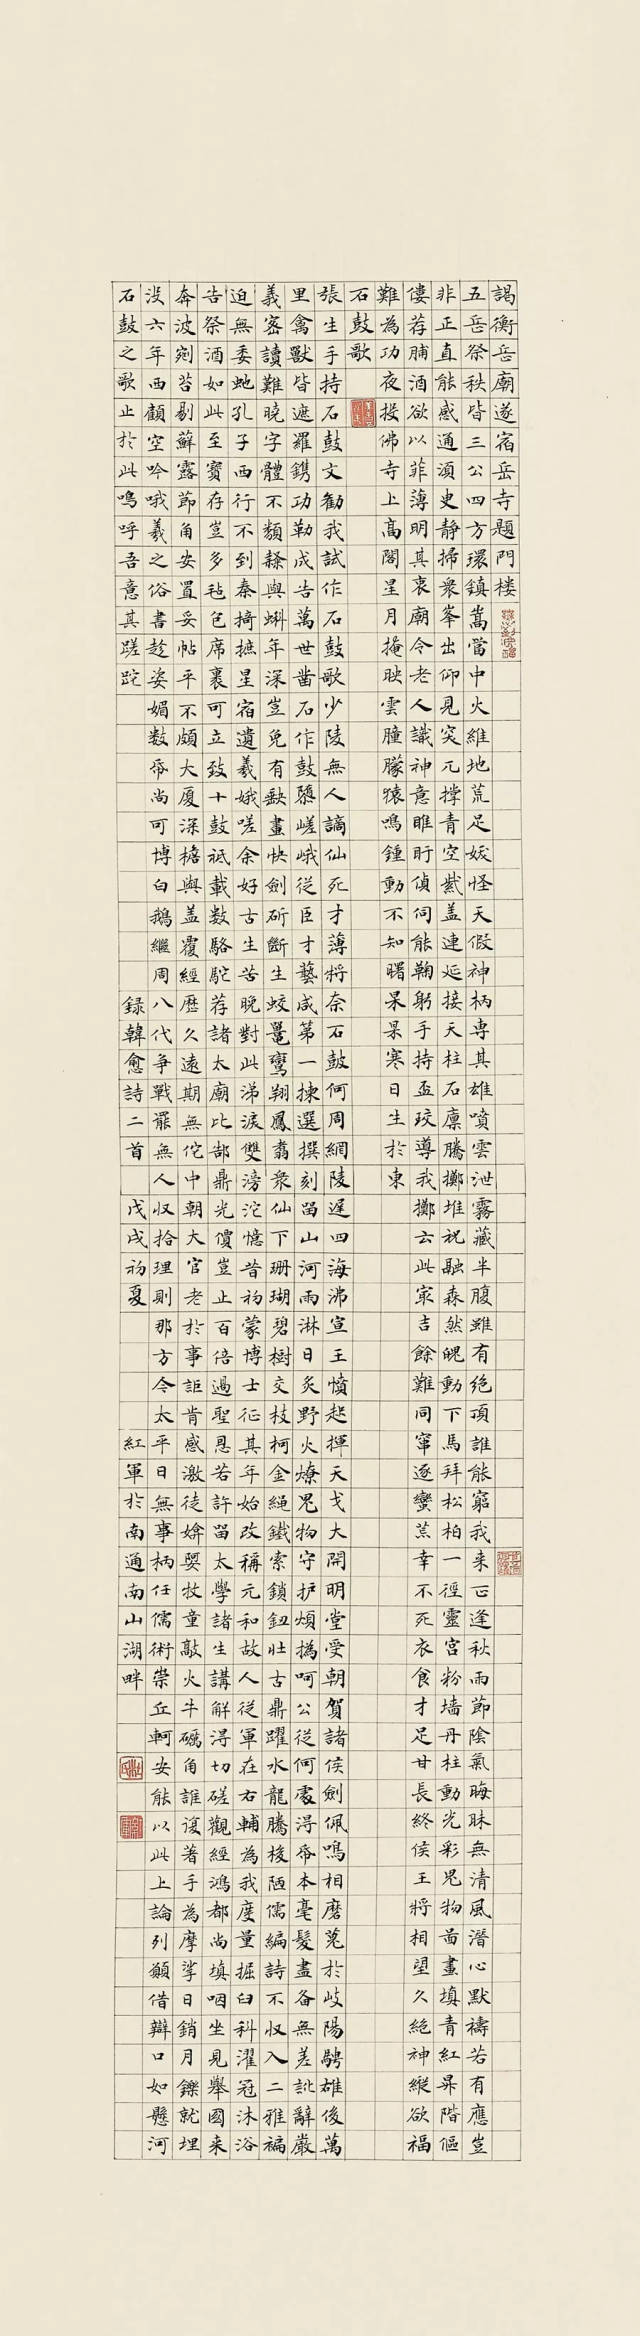 謁衡岳廟遂宿岳寺題門楼
五岳祭秩皆三公四方環鎮嵩當中火維地荒足妖怪天假神柄専其雄噴雲泄霧藏半腹雖有绝頂誰能窮我来正逢秋雨節陰氣晦昧無清風潛心默禱若有應豈
非正直能感通須臾静掃衆峯出仰見突兀撑青空紫盖連延接天柱石廪騰擲堆祝融森然魄動下馬拜松柏一徑靈宫粉墙丹柱動光彩鬼物啚畫填青紅昇階傴
僂荐脯酒欲以菲薄明其衷廟令老人識神意睢盱偵伺能鞠躬手持盃珓導我擲云此㝡吉餘難同竄逐蠻荒幸不死衣食才足甘長終侯王將相望久絶神縱欲福
難為功夜投佛寺上高閣星月掩映雲朣朦猿鳴鍾動不知曙杲杲寒日生於東
石鼓歌
張生手持石鼓文勸我試作石鼓歌少陵無人謫仙死才薄將奈石鼓何周綱陵遲四海沸宣王憤起揮天戈大開明堂受朝賀諸侯劍佩鳴相磨蒐於岐陽騁雄俊萬
里禽獸皆遮羅鐫功勒成告萬世凿石作鼓隳嵯峨從臣才藝咸第一揀選撰刻留山河雨淋日炙野火燎鬼物守护煩撝呵公從何處得帋本毫髮盡备無差訛辭嚴
義密讀難曉字體不類隸與蝌年深豈免有缺畫快劍斫斷生蛟鼉鸞翔鳳翥衆仙下珊瑚碧樹交枝柯金繩鐵索鎖鈕壯古鼎躍水龍騰梭陋儒編詩不収入二雅褊
迫無委虵孔子西行不到秦掎摭星宿遺羲娥嗟余好古生苦晚對此涕淚雙滂沱憶昔初蒙博士征其年始改稱元和故人從軍在右輔為我度量掘臼科濯冠沐浴
告祭酒如此至寶存豈多毡包席裹可立致十鼓祗載数駱駝荐諸太廟比郜鼎光價豈止百倍過聖恩若許留太學諸生講解得切磋觀經鴻都尚填咽坐見舉國来
奔波剜苔剔蘚露節角安置妥帖平不頗大厦深檐與盖覆經歷久遠期無佗中朝大官老於事詎肯感激徒媕娿牧童敲火牛礪角誰復著手為摩挲日銷月鑠就埋
没六年西顧空吟哦羲之俗書趁姿媚数帋尚可博白鵝繼周八代争戰罷無人収拾理則那方今太平日無事柄任儒術崇丘軻安能以此上論列願借辯口如懸河
石鼓之歌止於此鳴呼吾意其蹉跎 録韓愈詩二首 戊戌初夏 紅軍於南通南山湖畔